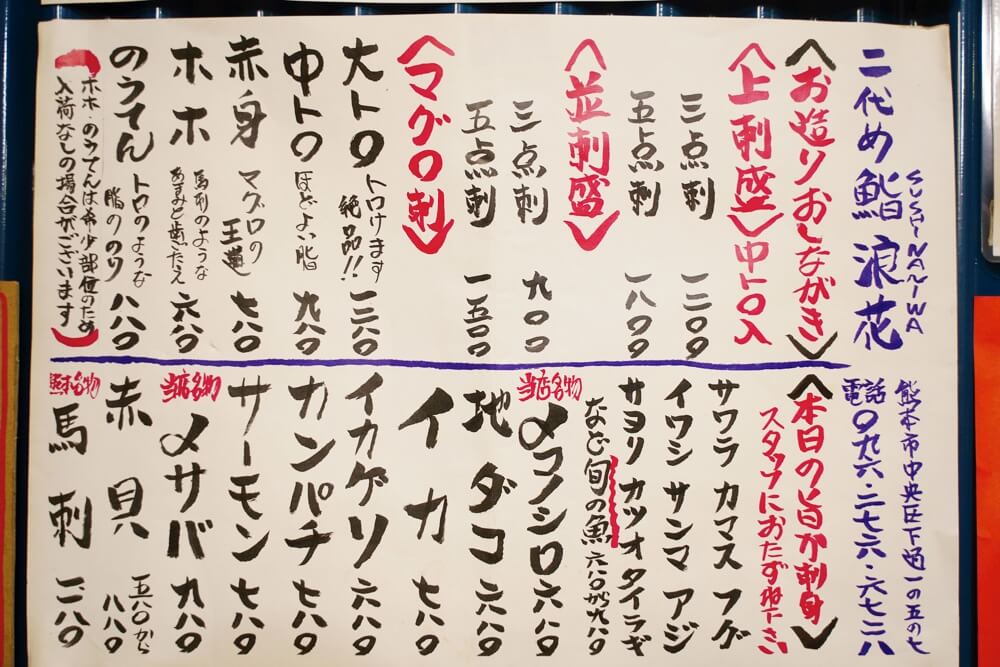 二代め 鮨 浪花
SUSHI NANIWA
熊本市中央区下通一の五の七
電話〇九六・二七六・六七二八
〈お造りおしながき〉
〈上刺盛〉中トロ入
三点刺 一二〇〇
五点刺 一八〇〇
〈並刺盛〉
三点刺 九〇〇
五点刺 一五〇〇
〈マグロ刺〉
大トロ トロけます 絶品!! 一二八〇
中トロ ほどよい脂 九八〇
赤身 マグロの王道 七八〇
ホホ 馬刺のようなあまみと歯ごたえ 六八〇
のうてん トロのような脂ののり 八八〇
ホホ・のうてんは希少部位のため
入荷なしの場合がございます
〈本日の旨か刺身〉
スタッフにおたずね下さい
サワラ カマス フグ
イワシ サンマ アジ
サヨリ カツオ タイラギ
など旬の魚 六八〇から九八〇
当店名物 〆コノシロ 六八〇
地ダコ 六八〇
イカ 七八〇
イカゲソ 六八〇
カンパチ 七八〇
サーモン 七八〇
当店名物 〆サバ 九八〇
赤貝 五八〇から八八〇
熊本名物 馬刺 一二八〇